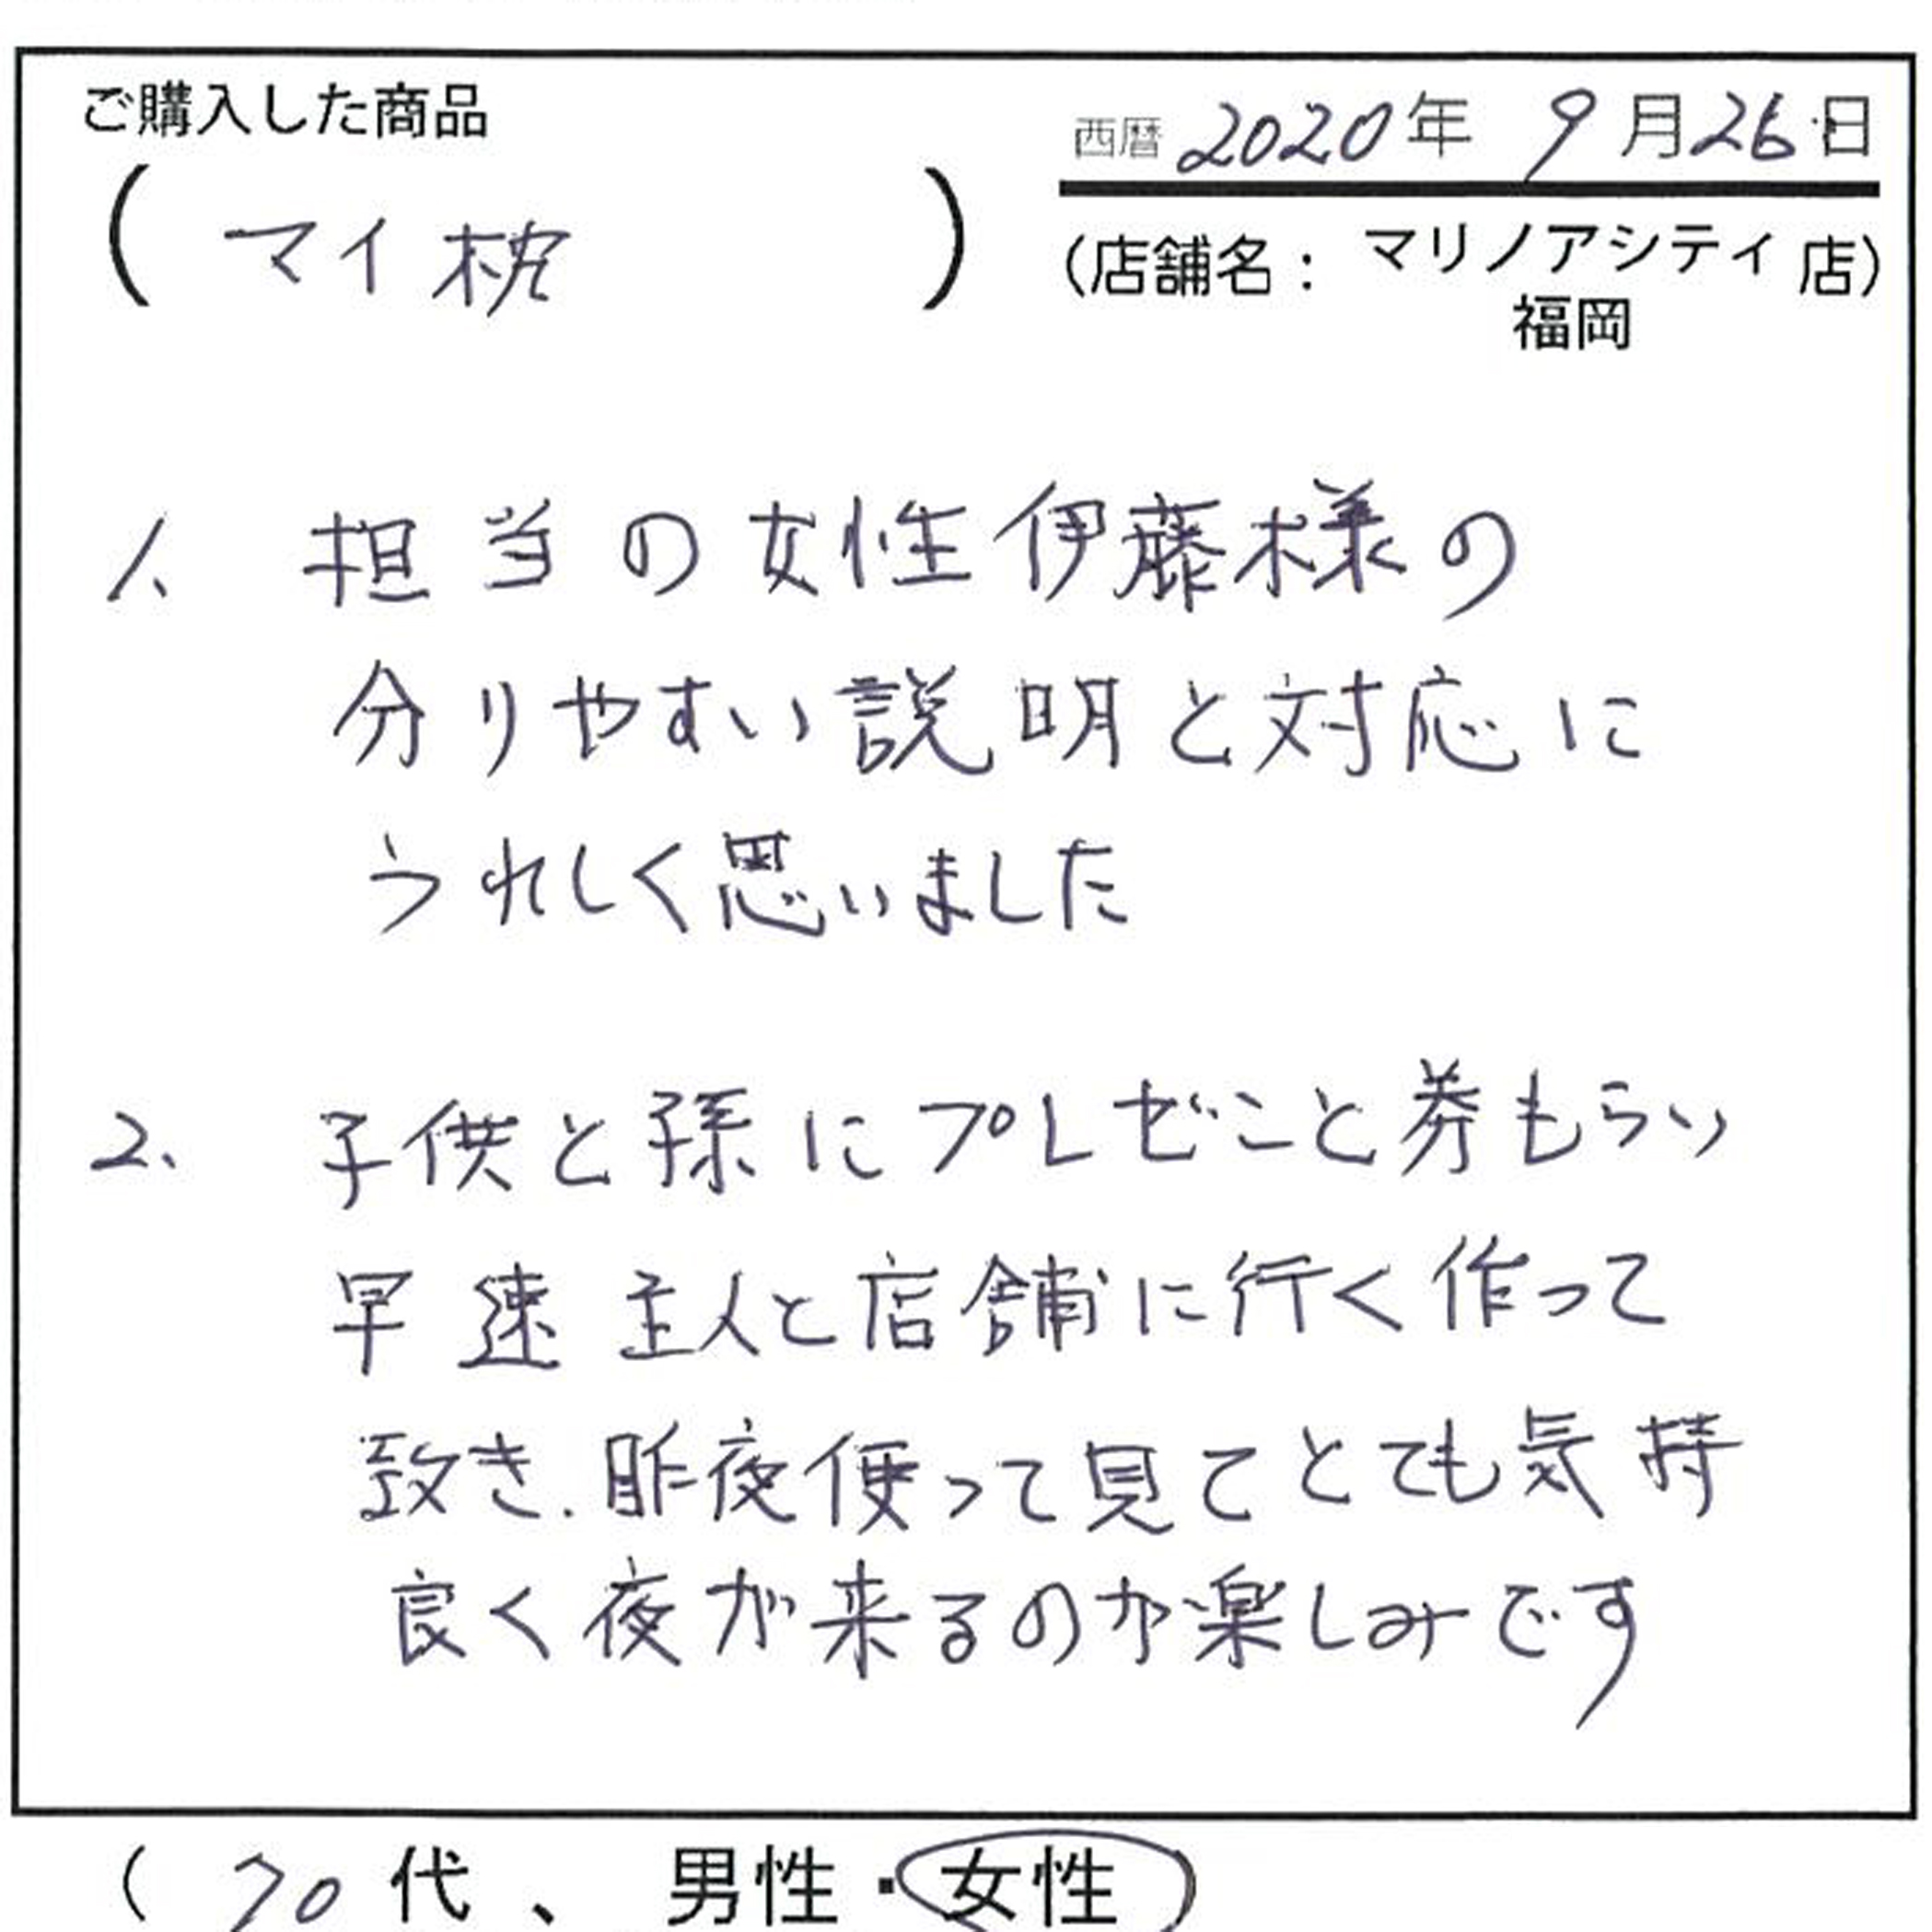 ご購入した商品
西暦 2020年 9月26日
(マイ枕)
(店舗名: マリノアシティ福岡 店)
1. 担当の女性伊藤様の
分りやすい説明と対応に
うれしく思いました
2. 子供と孫にプレゼこと券もらい
早速主人と店舗に行く作って
致き、昨夜使って見てとても気持
良く夜が来るのが楽しみです
(70代、男性・女性)